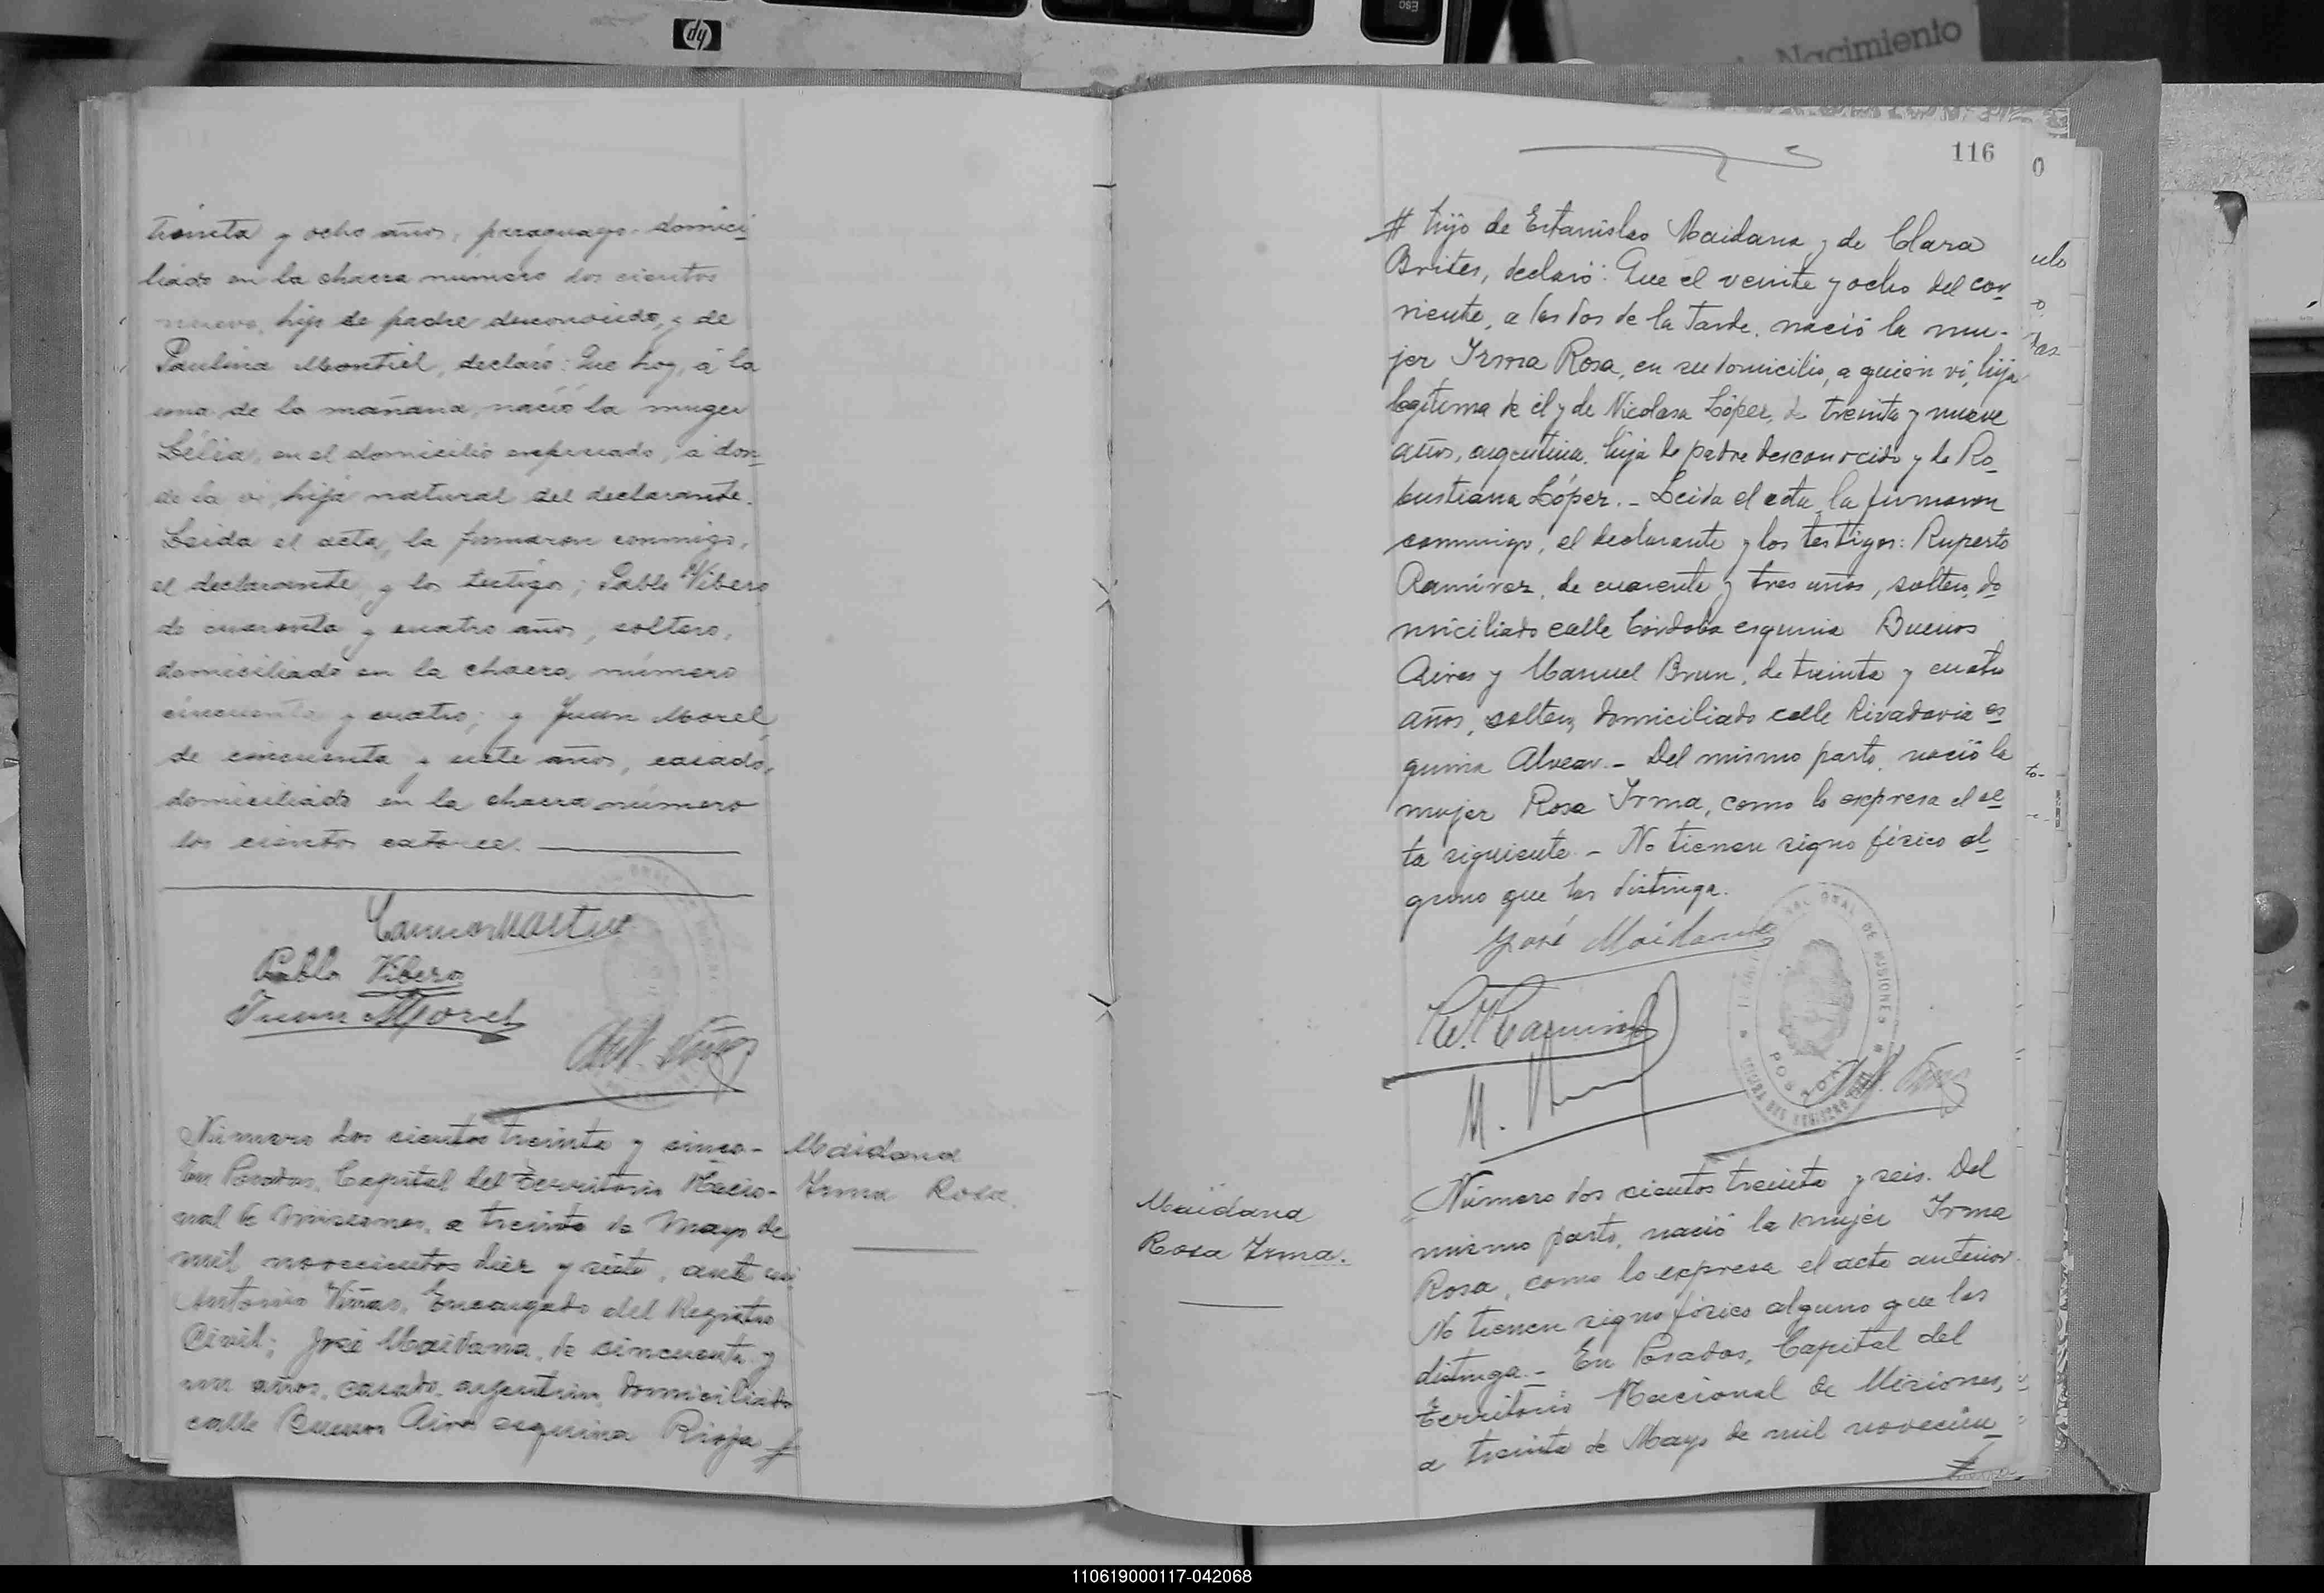 hp
Esc
Nacimiento
treinta y ocho años, paraguayo, domici-
liado en la chacra número dos cientos
nueve, hijo de padre desconocido, y de
Paulina Montiel, declaró: Que hoy, á la
una de la mañana, nació la muger
Lélia, en el domicilio expresado, a don-
de la vi, hija natural del declarante.
Leida el acta, la firmaron conmigo,
el declarante y los testigos; Pablo Vibero,
de cuarenta y cuatro años, soltero,
domiciliado en la chacra, número
cincuenta y cuatro; y Juan Morel
de cincuenta y siete años, casado,
domiciliado en la chacra número
dos cientos catorce.
Pablo Vibero
Juan Morel
Número dos cientos treinta y cinco-
En Posadas, Capital del Territorio Nacio-
nal de Misiones, a treinta de Mayo de
mil novecientos diez y siete, ante mi
Antonio Viñas, Encargado del Registro
Civil; José Maidana, de cincuenta y
un años, casado, argentino, domiciliado
calle Buenos Aires esquina Rioja #
Maidana
Irma Rosa
116
# hijo de Estanislao Maidana y de Clara
Brites, declaró: Que el veinte y ocho del cor-
riente, a las dos de la tarde, nació la mu-
jer Irma Rosa, en su domicilio, a quien vi, hija
legítima de él y de Nicolasa López, de treinta y nueve
años, argentina, hija de padre desconocido y de Ro-
bustiana López. - Leida el acta, la firmaron
conmigo, el declarante y los testigos: Ruperto
Ramirez, de cuarenta y tres años, soltero, do
miciliado calle Córdoba esquina Buenos
Aires y Manuel Brun, de treinta y cuatro
años, soltero, domiciliado calle Rivadavia es
quina Alvear. - Del mismo parto, nació la
mujer Rosa Irma, como lo expresa el ac
ta siguiente - No tienen signo físico al
guno que las distinga.
José Maidana
POSADAS
Maidana
Rosa Irma.
Número dos cientos treinta y seis. Del
mismo parto, nació la mujer Irma
Rosa, como lo expresa el acta anterior.
No tienen signo físico alguno que las
distinga. - En Posadas, Capital del
Territorio Nacional de Misiones,
a treinta de Mayo de mil novecien-
110619000117-042068